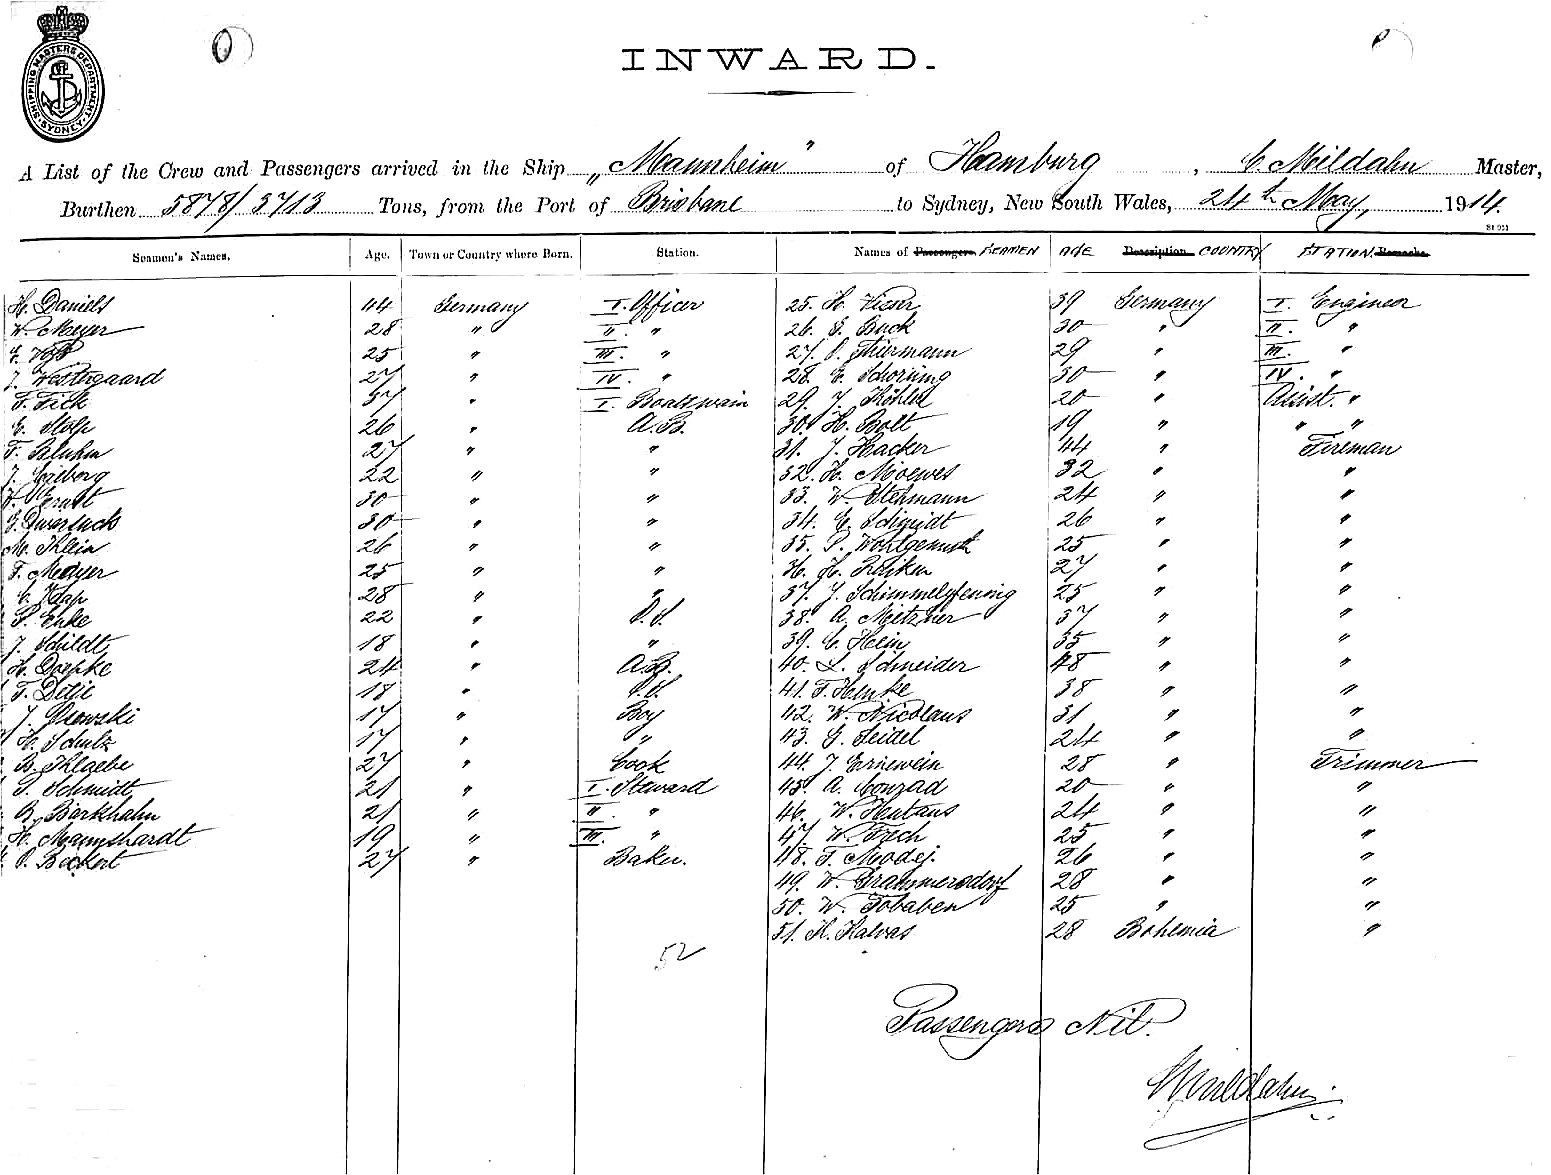 SHIPPING MASTERS DEPARTMENT
SYDNEY
INWARD.
A List of the Crew and Passengers arrived in the Ship „Mannheim" of Hamburg, C. Mildahn Master,
Burthen 5878/3713 Tons, from the Port of Brisbane to Sydney, New South Wales, 24th May, 1914.
Seamen's Names. Age. Town or Country where Born. Station. Names of Passengers. SEAMEN AGE Description COUNTRY STATION Remarks.
H. Daniels 44 Germany I. Officer 25. H. Visser 39 Germany I. Engineer
W. Meyer 28 " II. " 26. Buck 30 " II. "
25 " III. " 27. Thiermann 29 " III. "
J. Westergaard 27 " IV. " 28. E. 30 " IV. "
F. Fick 37 " I. Boatswain 29. J. Köhler 20 " Assist. "
E. 26 " A.B. 30. H. Bolt 19 " " "
F. Bluhm 27 " " 31. J. Hacker 44 " Fireman
J. 22 " " 32. H. Moewes 32 " "
W. Ernst 30 " " 33. W. Stehmann 24 " "
30 " " 34. E. Schmidt 26 " "
M. 26 " " 35. P. Wohlgemuth 25 " "
F. Meyer 25 " " H. H. 27 " "
28 " " 37. J. Schimmelpfening 25 " "
Enke 22 " O.S. 38. A. Mietzner 37 " "
J. Schildt 18 " " 39. C. Hein 35 " "
H. Doepke 24 " A.B. 40. L. Schneider 48 " "
F. 18 " O.S. 41. F. Henke 38 " "
J. 17 " Boy 42. W. Nicolaus 31 " "
H. Schulz 17 " " 43. G. Seidel 24 " "
B. 27 " Cook 44. J. Erniewein 28 " Trimmer
Schmidt 21 " I. Steward 45. A. Conrad 20 " "
B. Barkhahn 21 " II. " 46. W. 24 " "
H. Mannshardt 19 " III. " 47. W. 25 " "
Beckert 27 " Baker. 48. F. Modej. 26 " "
49. W. Grammersdorf 28 " "
50. W. Tobaben 25 " "
51. H. Halvas 28 Bohemia "
52
Passengers Nil.
C. Mildahn